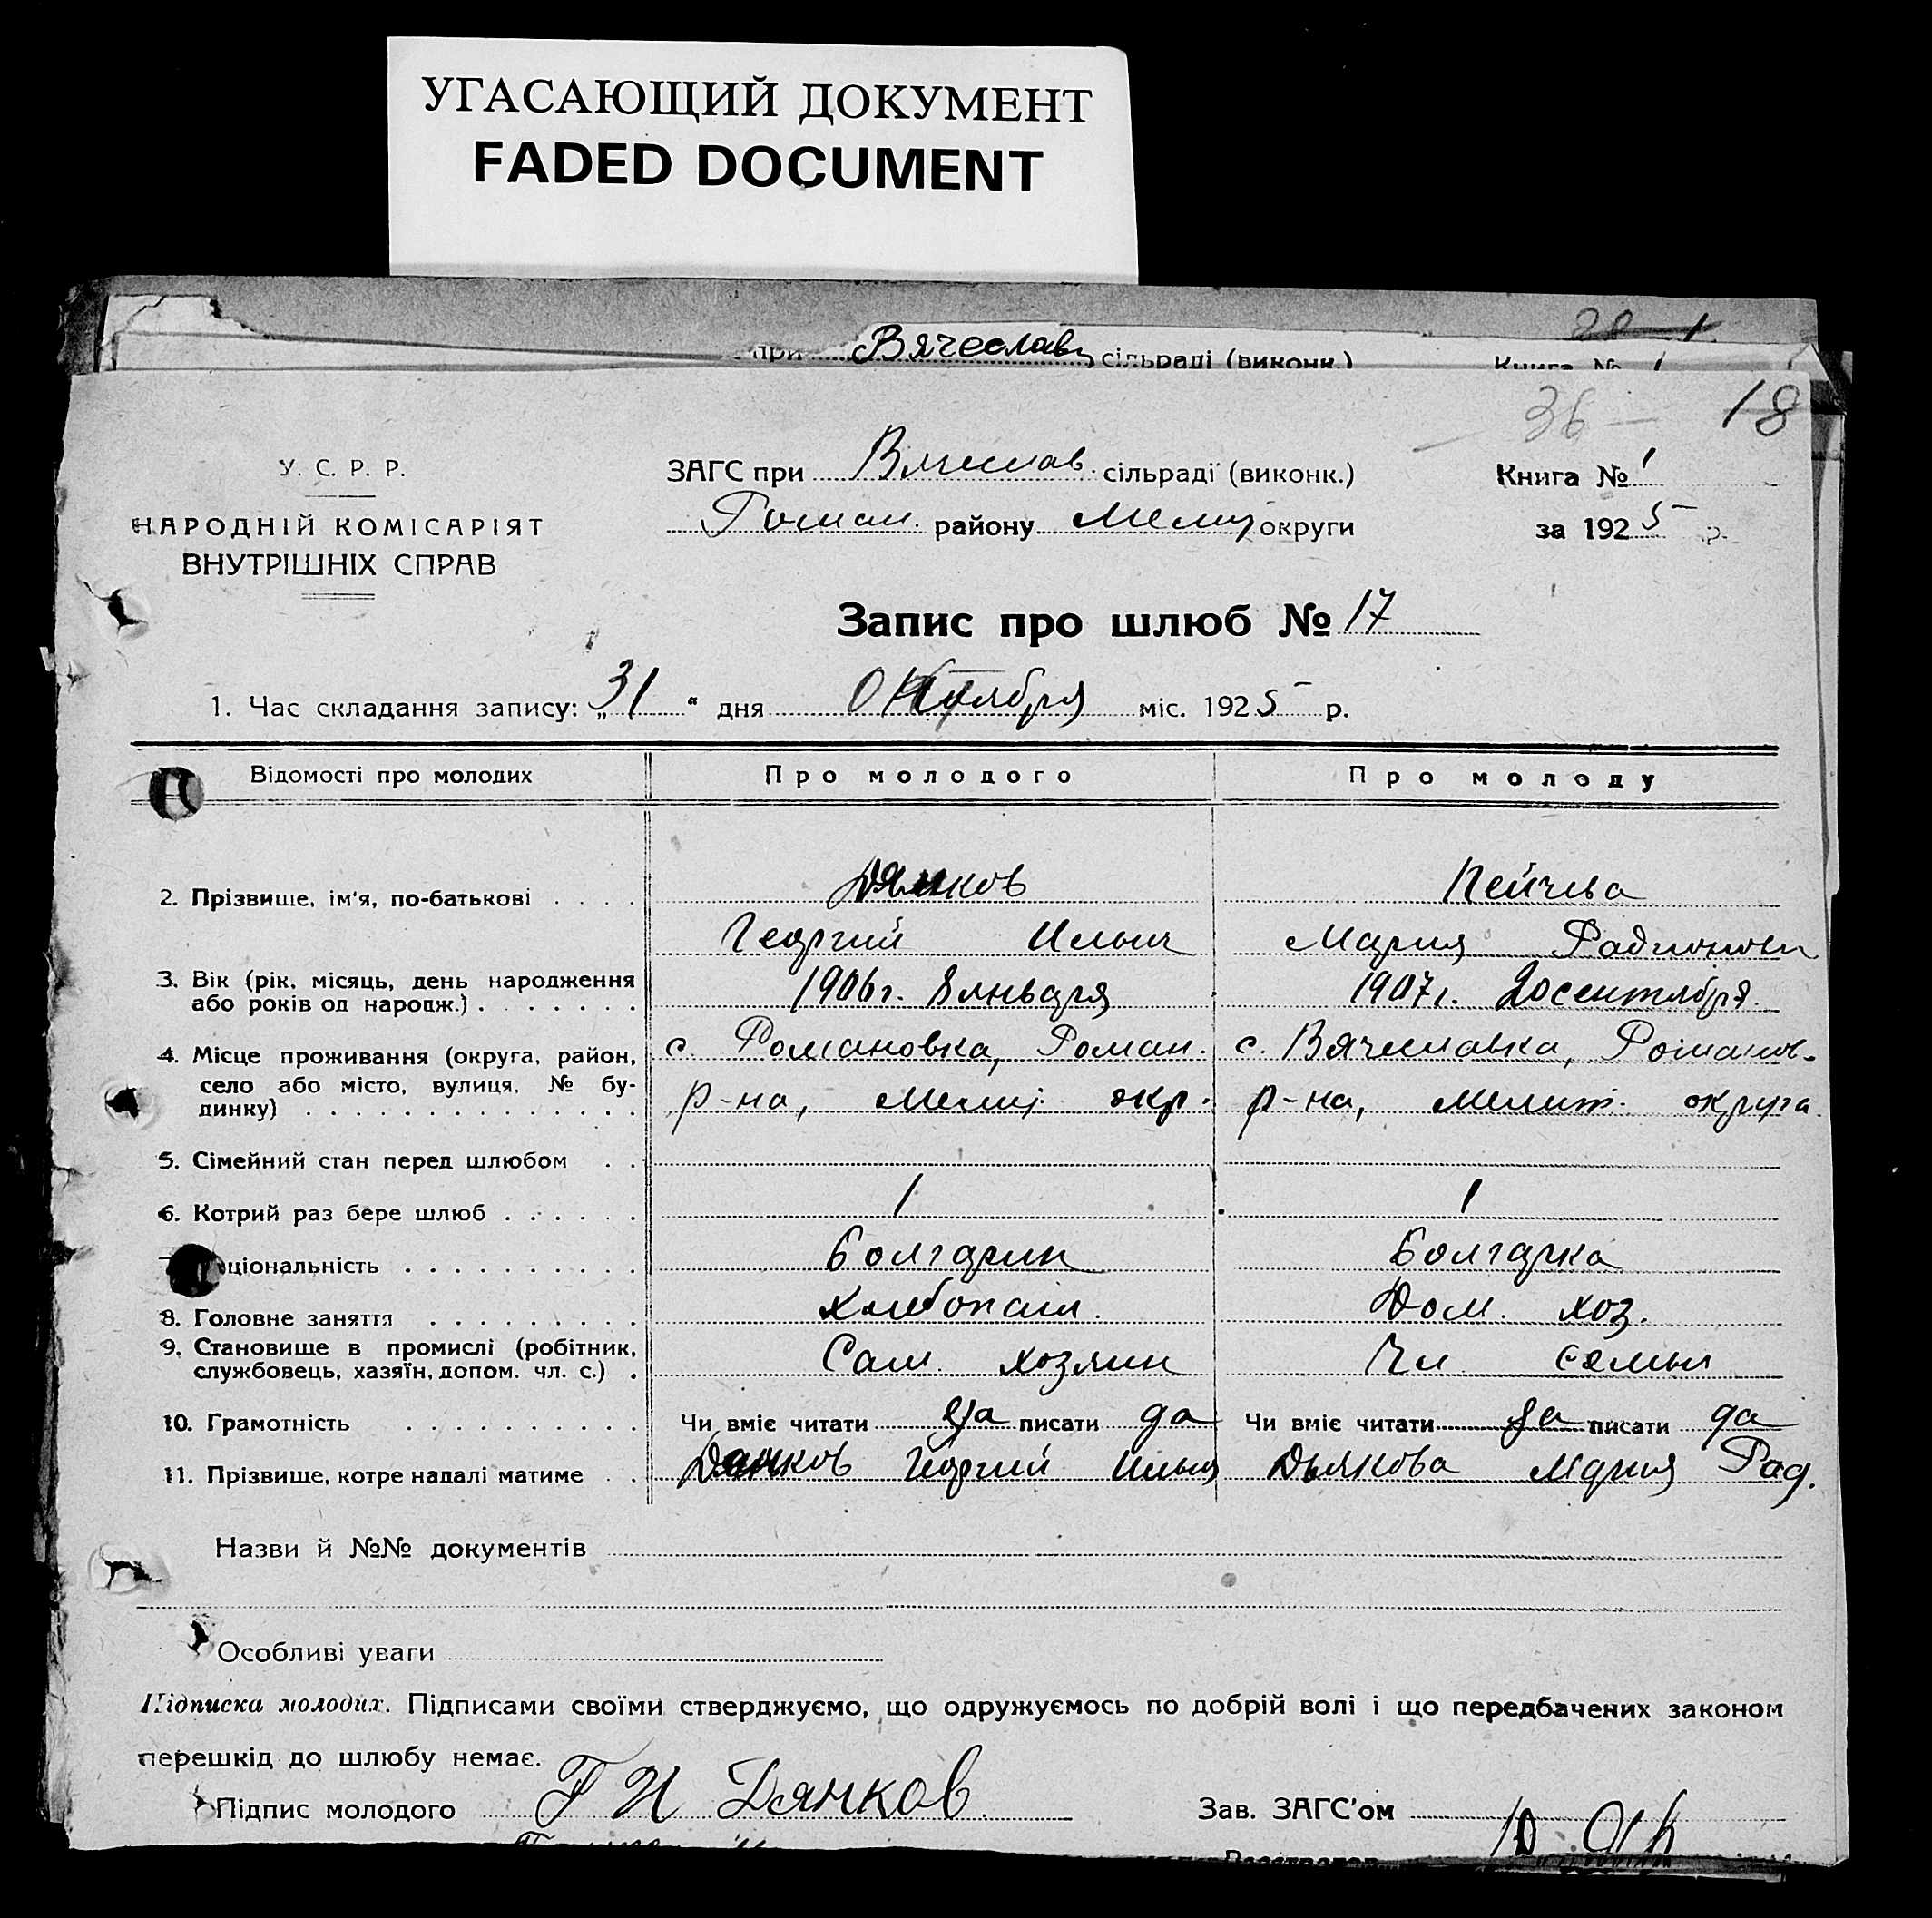 УГАСАЮЩИЙ ДОКУМЕНТ
FADED DOCUMENT
при Вячеслав сільраді (виконк.) Книга № 1
36 — 18
У. С. Р. Р. ЗАГС при Вячеслав. сільраді (виконк.) Книга № 1
НАРОДНІЙ КОМІСАРІЯТ Роман. району Мелит округи за 1925 р.
ВНУТРІШНІХ СПРАВ
Запис про шлюб № 17
1. Час складання запису: „31" дня Октября міс. 1925 р.
Відомості про молодих Про молодого Про молоду
2. Прізвище, ім'я, по-батькові . . . . Дянков Пейчева
Георгий Ильич Мария Радионовн
3. Вік (рік, місяць, день народження 1906 г. 8 января 1907 г. 20 сентября.
або років од народж.) . . . . . . .
4. Місце проживання (округа, район, с. Романовка, Роман. с. Вячеславка, Романов-
село або місто, вулиця, № бу- р-на, Мелит. окр. р-на, Мелит. округа.
динку) . . . . . . . . . . . . . .
5. Сімейний стан перед шлюбом . .
6. Котрий раз бере шлюб . . . . . . 1 1
ціональність . . . . . . . . . . Болгарин Болгарка
8. Головне заняття . . . . . . . . . Хлебопаш. Дом. хоз.
9. Становище в промислі (робітник, Сам. хозяин Чл. семьи
службовець, хазяїн, допом. чл. с.) .
10. Грамотність . . . . . . . . . . Чи вміє читати да писати да Чи вміє читати да писати да
11. Прізвище, котре надалі матиме . . Дянков Георгий Ильич Дьякова Мария Рад.
Назви й №№ документів
Особливі уваги
Підписка молодих. Підписами своїми стверджуємо, що одружуємось по добрій волі і що передбачених законом
перешкід до шлюбу немає.
Підпис молодого Г И Дянков Зав. ЗАГС'ом